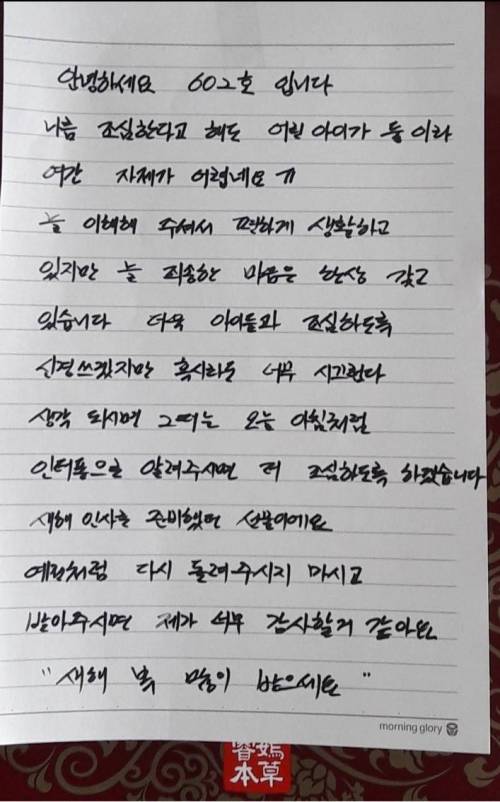 안녕하세요 602호 입니다
나름 조심한다고 해도 어린 아이가 둘 이라
여간 자제가 어렵네요 ㅠ
늘 이해해 주셔서 편하게 생활하고
있지만 늘 죄송한 마음은 항상 갖고
있습니다 더욱 아이들과 조심하도록
신경쓰겠지만 혹시라도 너무 시끄럽다
생각 되시면 그때는 오늘 아침처럼
인터폰으로 알려주시면 더 조심하도록 하겠습니다
새해 인사를 준비했던 선물이에요
예전처럼 다시 돌려주시지 마시고
받아주시면 제가 너무 감사할거 같아요
"새해 복 많이 받으세요"
morning glory
本草